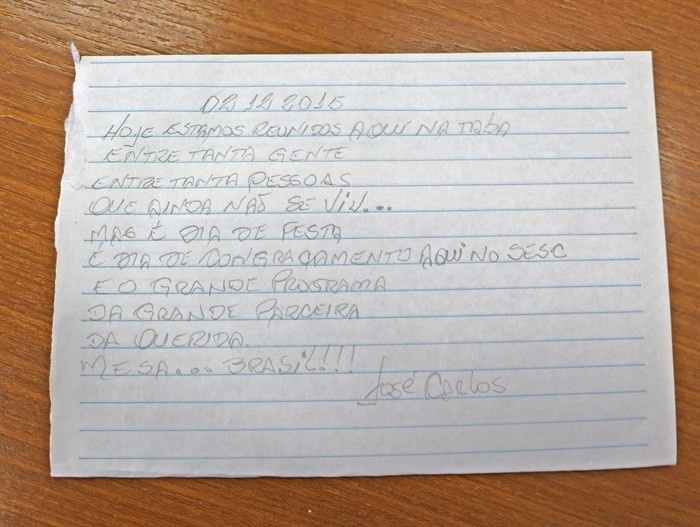 02 12 2016
HOJE ESTAMOS REUNIDOS AQUI NA TABA
ENTRE TANTA GENTE
ENTRE TANTA PESSOAS
QUE AINDA NÃO SE VIU...
MAS É DIA DE FESTA
É DIA DE CONGRAÇAMENTO AQUI NO SESC
E O GRANDE PROGRAMA
DA GRANDE PARCEIRA
DA QUERIDA.
MESA... BRASIL!!!
JOSÉ CARLOS